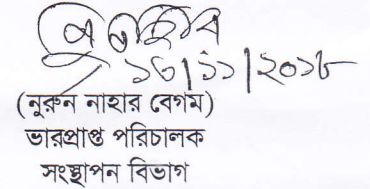 ১৩/১১/২০১৮
(নুরুন নাহার বেগম)
ভারপ্রাপ্ত পরিচালক
সংস্থাপন বিভাগ